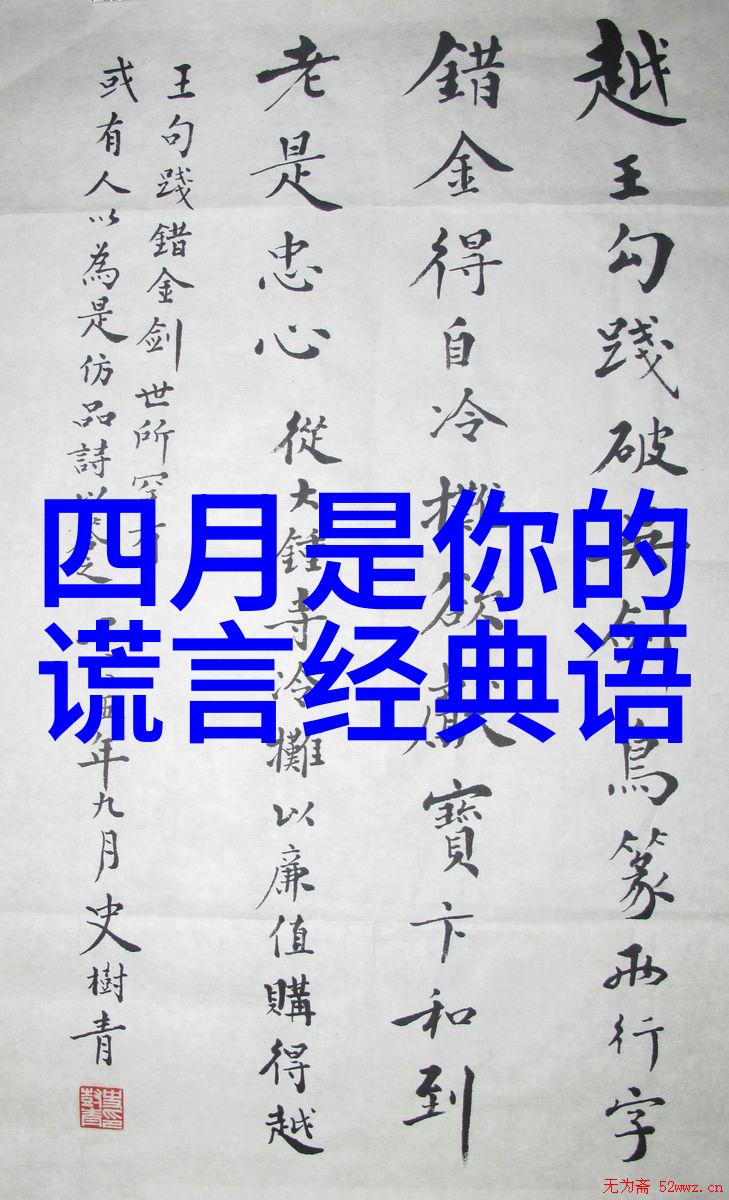 越王勾践破吴剑鳥篆两行字
錯金得自冷攤欲獻寶卞和到
老是忠心 從大鍾寺冷攤以廉值購得越
王句踐錯金剑世所罕有
或有人以為是仿品詩以答之 年九月史樹青
四月是你的
谎言经典语
无为斋 52wwz.cn